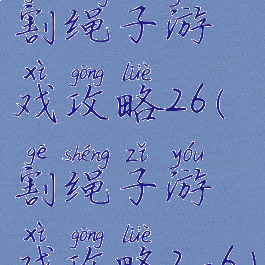 割绳子游
xì gōng lüè
戏攻略26(
gē shéng zǐ yóu
割绳子游
xì gōng lüè
戏攻略2-6)